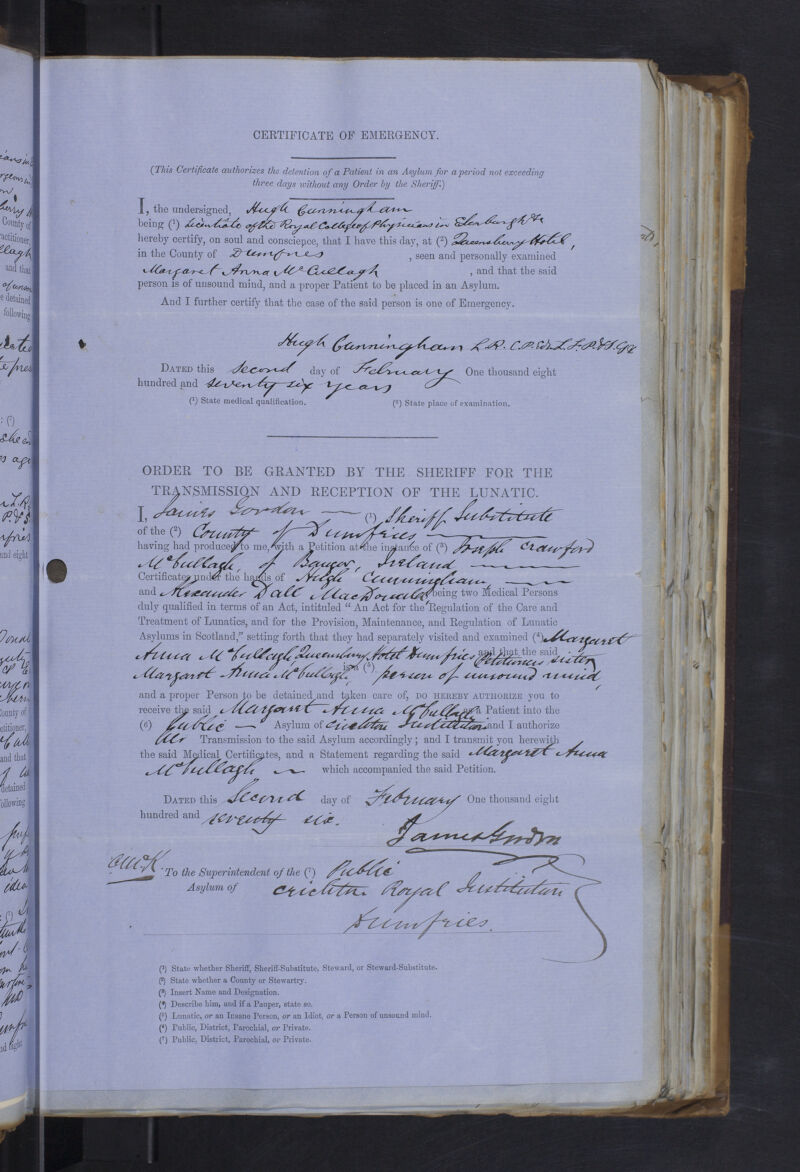 CERTIFICATE OF EMERGENCY.
(This Certificate authorizes the detention of a Patient in an Asylum for a period not exceeding
three days without any Order by the Sheriff.)
I, the undersigned, Hugh Cunningham
being (1) Licentiate of the Royal College of Physicians in Edenburgh &c
hereby certify, on soul and conscience, that I have this day, at (2) Queensberry Hotel,
in the County of Dumfries, seen and personally examined
Margaret Anna McCullagh, and that the said
person is of unsound mind, and a proper Patient to be placed in an Asylum.
And I further certify that the case of the said person is one of Emergency.
Hugh Cunningham L.R.C.P. Ed. L.F.P.&S. Gl
DATED this Second day of February One thousand eight
hundred and seventy six years
(1) State medical qualification. (2) State place of examination.
ORDER TO BE GRANTED BY THE SHERIFF FOR THE
TRANSMISSION AND RECEPTION OF THE LUNATIC.
I, James Gordon — (1) Sheriff Substitute
of the (2) County of Dumfries —
having had produced to me, with a Petition at the instance of (3) Joseph Crawford
McCullagh, of Bangor, Ireland —
Certificates under the hands of Hugh Cunningham, —
and Alexander Dall MacDonald being two Medical Persons
duly qualified in terms of an Act, intituled "An Act for the Regulation of the Care and
Treatment of Lunatics, and for the Provision, Maintenance, and Regulation of Lunatic
Asylums in Scotland," setting forth that they had separately visited and examined (4) Margaret
Anna McCullagh, Queensberry Hotel Dumfries Petitioners sister and that the said
Margaret Anna McCullagh, is a (5) person of unsound mind,
and a proper Person to be detained and taken care of, DO HEREBY AUTHORIZE you to
receive the said Margaret Anna McCullagh as a Patient into the
(6) Public — Asylum of Crichton Institution and I authorize
her Transmission to the said Asylum accordingly; and I transmit you herewith
the said Medical Certificates, and a Statement regarding the said Margaret Anna
McCullagh — which accompanied the said Petition.
DATED this Second day of February One thousand eight
hundred and seventy six.
James Gordon
To the Superintendent of the (7) Public
Asylum of Crichton Royal Institution
Dumfries.
(1) State whether Sheriff, Sheriff-Substitute, Steward, or Steward-Substitute.
(2) State whether a County or Stewartry.
(3) Insert Name and Designation.
(4) Describe him, and if a Pauper, state so.
(5) Lunatic, or an Insane Person, or an Idiot, or a Person of unsound mind.
(6) Public, District, Parochial, or Private.
(7) Public, District, Parochial, or Private.